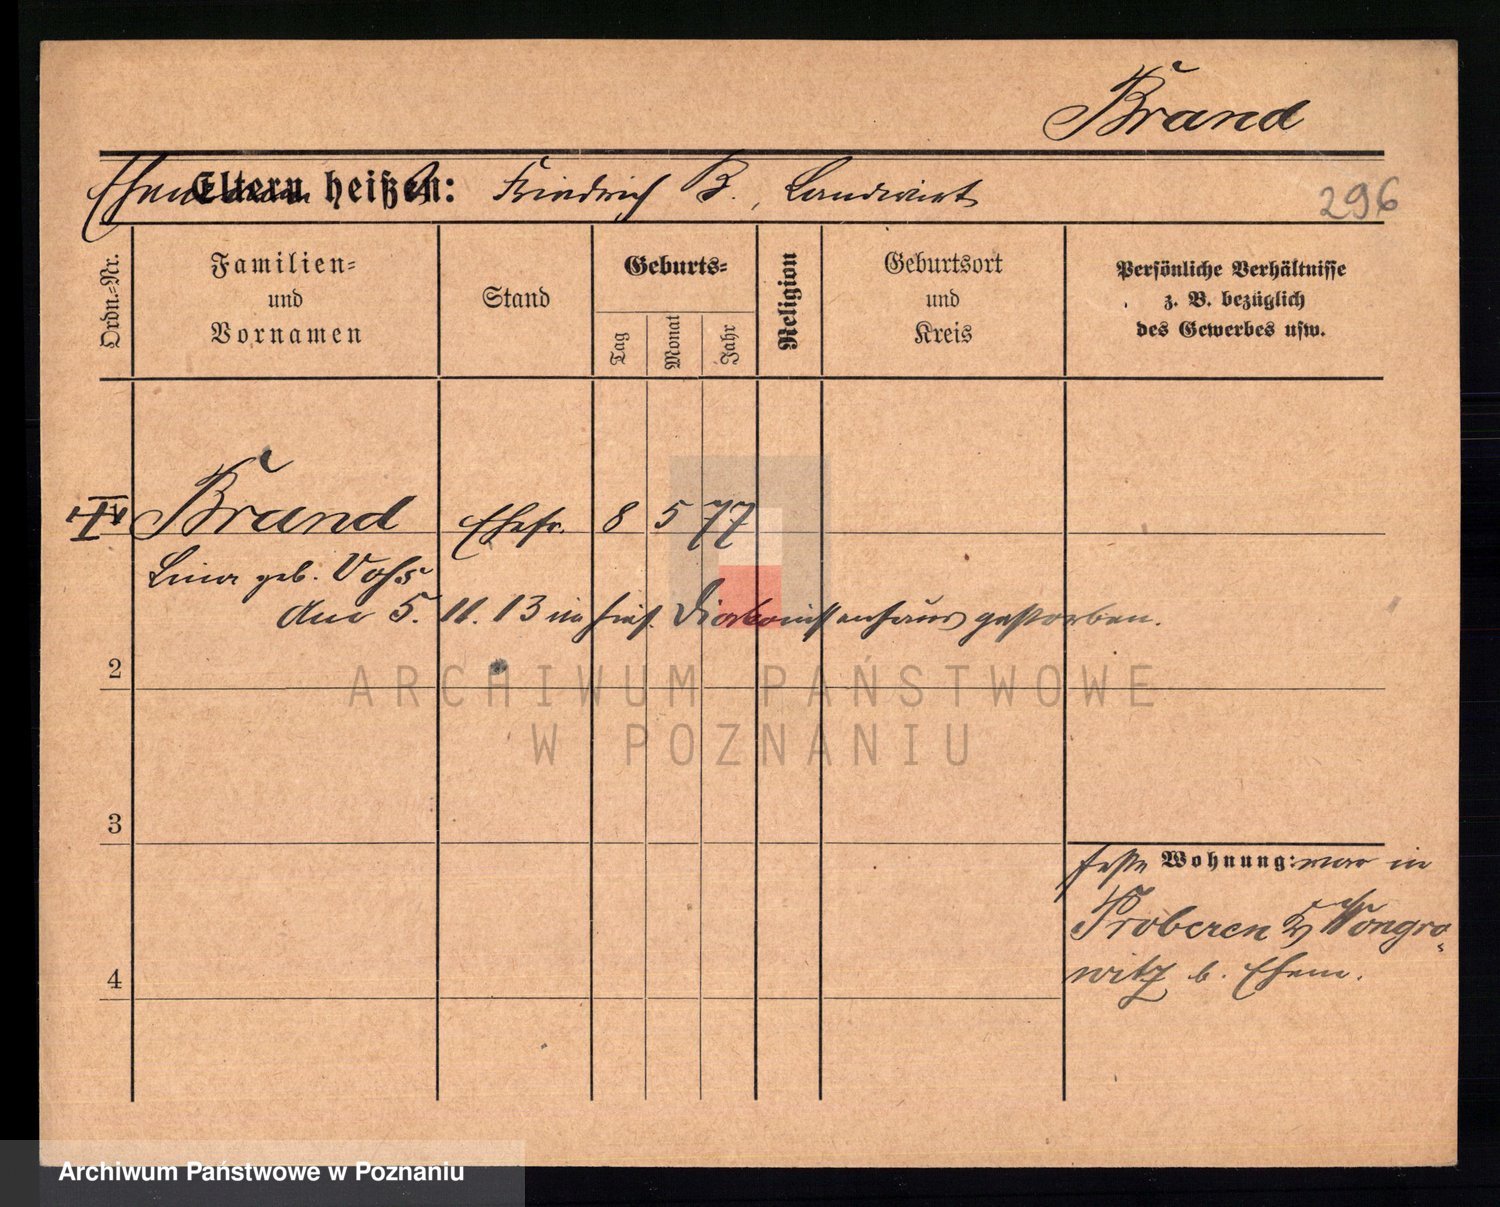 Brand
Eltern heißen: Friedrich B., Landwirt
296
Ordn.-Nr.
Familien-
und
Vornamen
Stand
Geburts-
Tag
Monat
Jahr
Religion
Geburtsort
und
Kreis
Persönliche Verhältnisse
z. B. bezüglich
des Gewerbes usw.
Brand Ehefr. 8 5 77
geb. Voß
5. 11. 13 im hies. Diakonissenhaus gestorben.
2
ARCHIWUM PAŃSTWOWE
W POZNANIU
3
feste Wohnung: war in
Proberen Kr. Wongro-
witz b. Ehem.
4
Archiwum Państwowe w Poznaniu